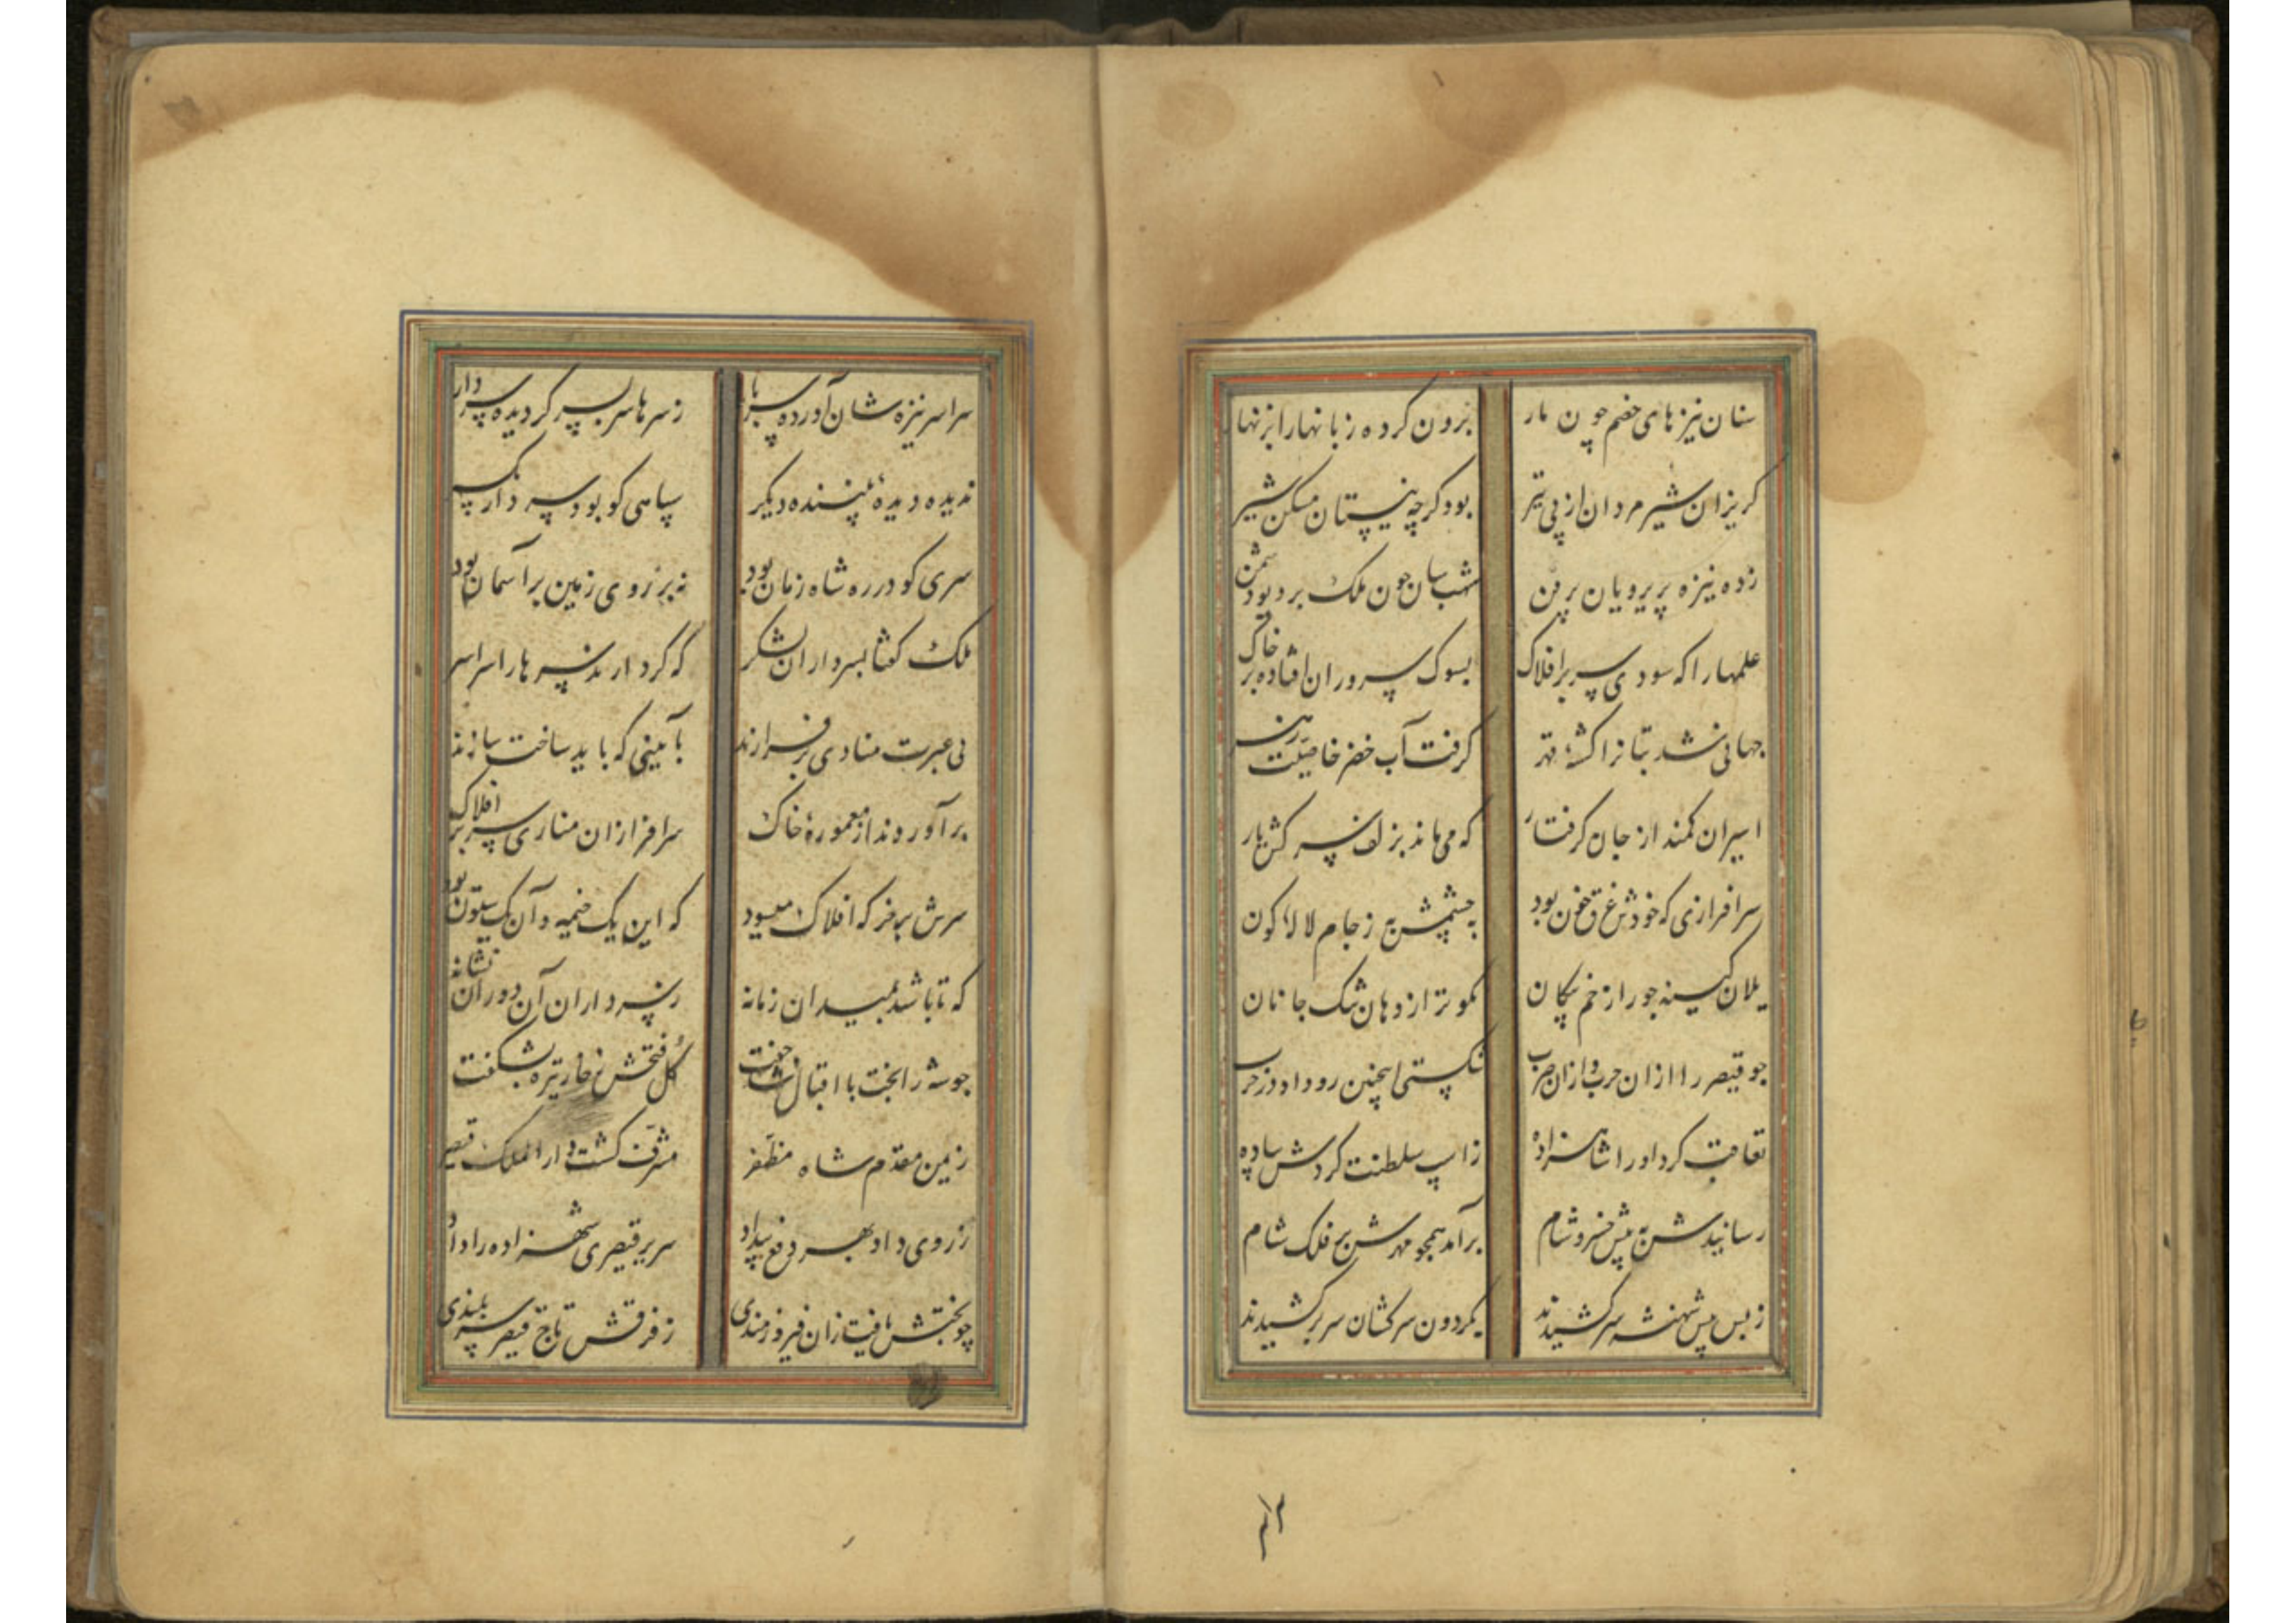 سنان نیزهای خصم چون مار برون کرده زبانها را بزنها
کریزان شیر مردان از پی تیر بود کرچه نیستان مسکن شیر
زده نیزه پریرویان برین شب سان چون ملک بر دیو دشمن
علمها را که سودی سر بر افلاک بسوک سروران افتاده بر خاک
جهانی شد بتانرا کشتهٔ قهر کرفت آب خضر خاصیت زهر
اسیران کمند از جان کرفتار که می ماند بزلف سرکش یار
سرافرازی که خودش غرق خون بود به چشمش به ز جام لاله کون
یلان کینه جو را زخم پیکان نکوتر از دهان تنک جانان
چو قیصر را ازان حرب و ازان ضرب شکستی اینچنین رو داد در حرب
تعاقب کرد او را شاهزاده ز اسپ سلطنت کردش پیاده
رسانیدش به پیش خسرو شام برآمد همچو مهرش بر فلک شام
ز بس پیش شهنشه سر کشیدند بکردون سرکشان سر بر کشیدند
سراسر نیزه شان آورده سر بار ز سرها سر بسر کردیده سردار
ندیده دیدهٔ بیننده دیکر سپاهی کو بود سردار
سری کو در ره شاه زمان بود نه بر روی زمین بر آسمان بود
ملک کفتا بسرداران لشکر که کرد ارند سرها را سراسر
پی عبرت منادی بر فرازند بآیینی که باید ساخت سازند
بر آوردند از معمورهٔ خاک سرافرازان مناری سر بر افلاک
سرش بر فخر که افلاک میسود که این یک خیمه و آن یک ستون بود
که تا باشد بمیدان زمانه ز سرداران آن دوران نشانه
چو شه را بخت با اقبال شد جفت کل فتحش ز خار تیره بشکفت
ز یمن مقدم شاه مظفر مشرف کشت دار الملک قیصر
ز روی داد بهر دفع بیداد سریر قیصری شهزاده را داد
چو بختش یافت زان فیروزمندی ز فرقش تاج قیصر سربلندی